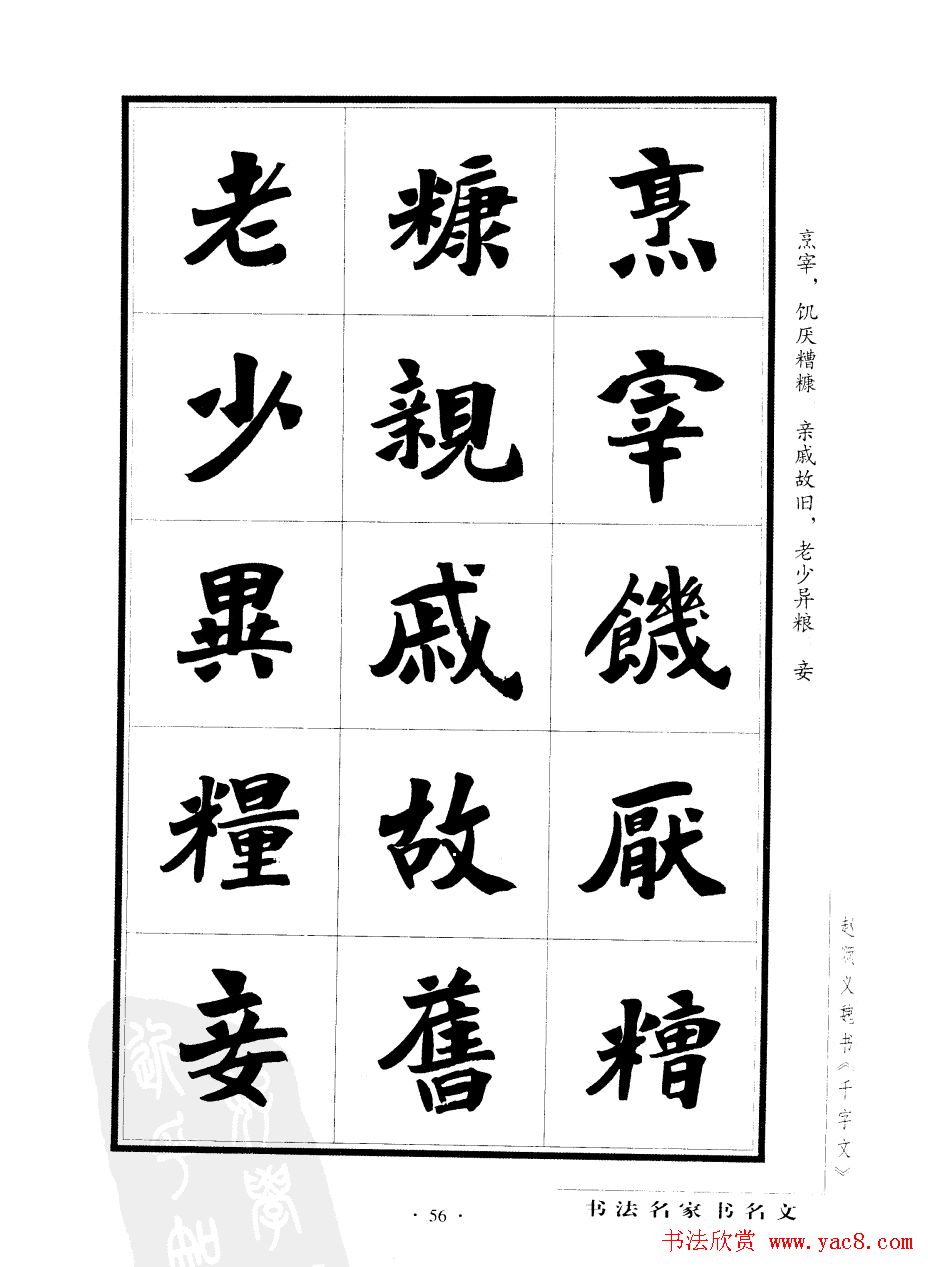 烹宰饑厭糟
糠親戚故舊
老少異糧妾
烹宰，饥厌糟糠 亲戚故旧，老少异粮 妾
赵颂义魏书《千字文》
· 56 ·
书法名家书名文
书法欣赏 www.yac8.com